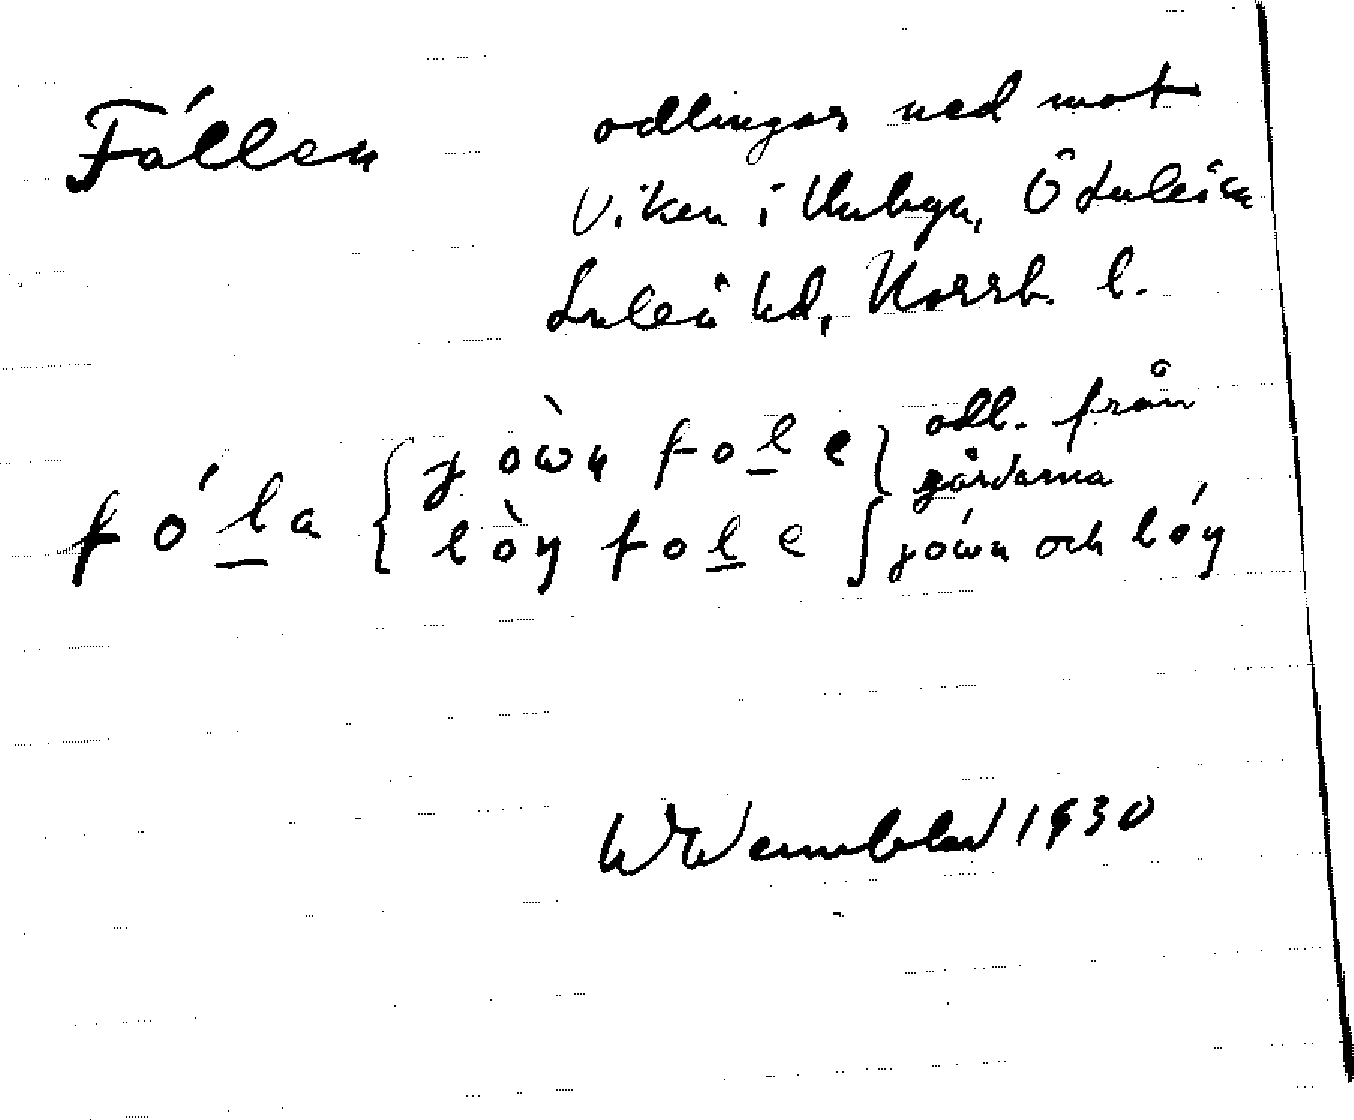 Fállen
odlingar ned mot
Viken i Unbyn, Ö Luleå sn
Luleå hd, Norrb. l.
fóla { jòwn fole } odl. från gårdarna
{ lòy fole } jówn och lóy
W Wennblad 1930